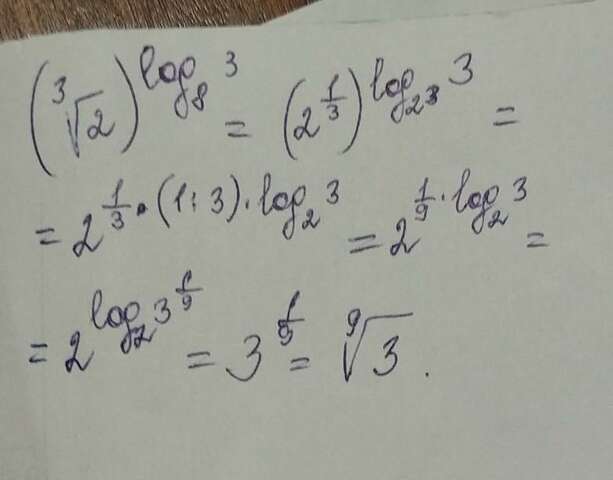 (³√2)^(log₈ 3) = (2^(1/3))^(log_(2³) 3) =
= 2^(1/3 · (1:3) · log₂ 3) = 2^(1/9 · log₂ 3) =
= 2^(log₂ 3^(1/9)) = 3^(1/9) = ⁹√3 .